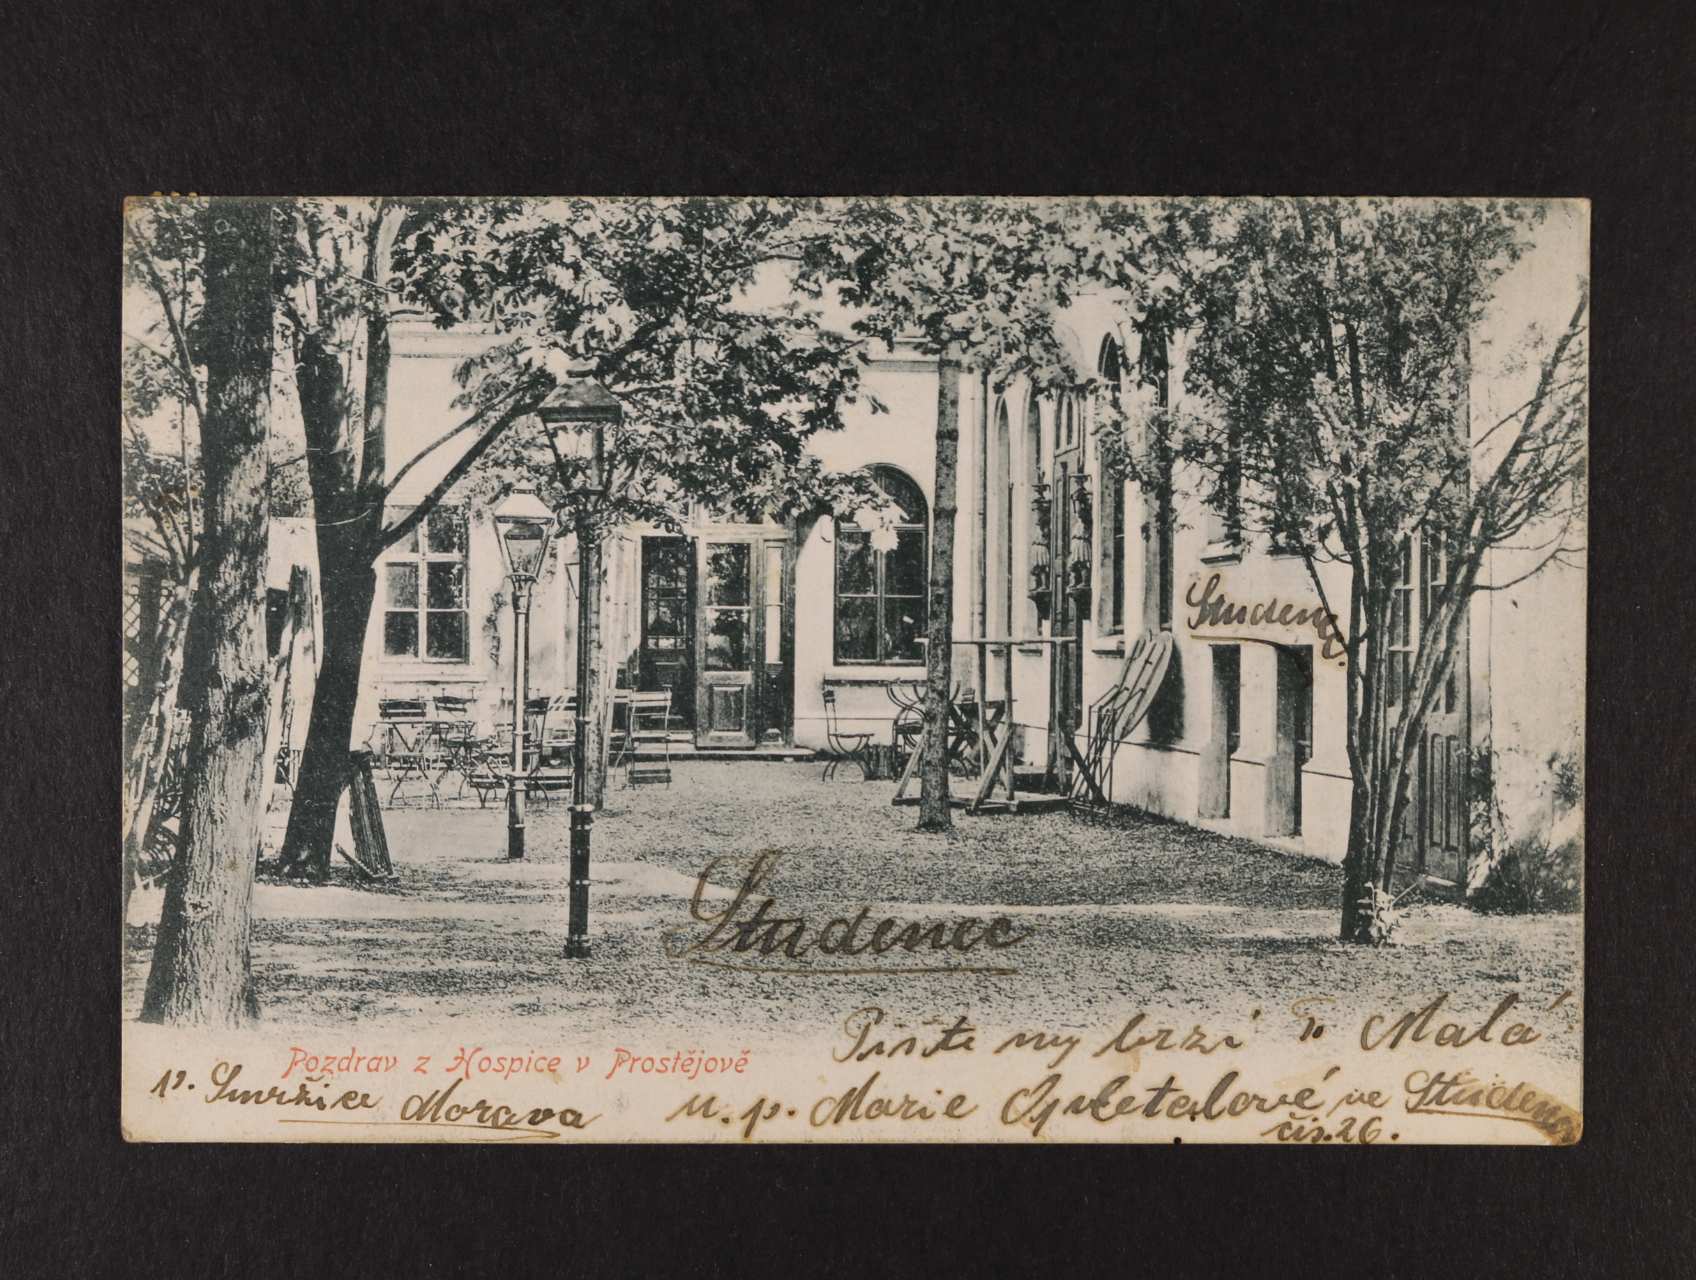 Studenec.
Studenec
Pište my brzi To Malá
Pozdrav z Hospice v Prostějově
p. Smržice Morava
u. p. Marie Opletalové ve Studenci
čís. 26.